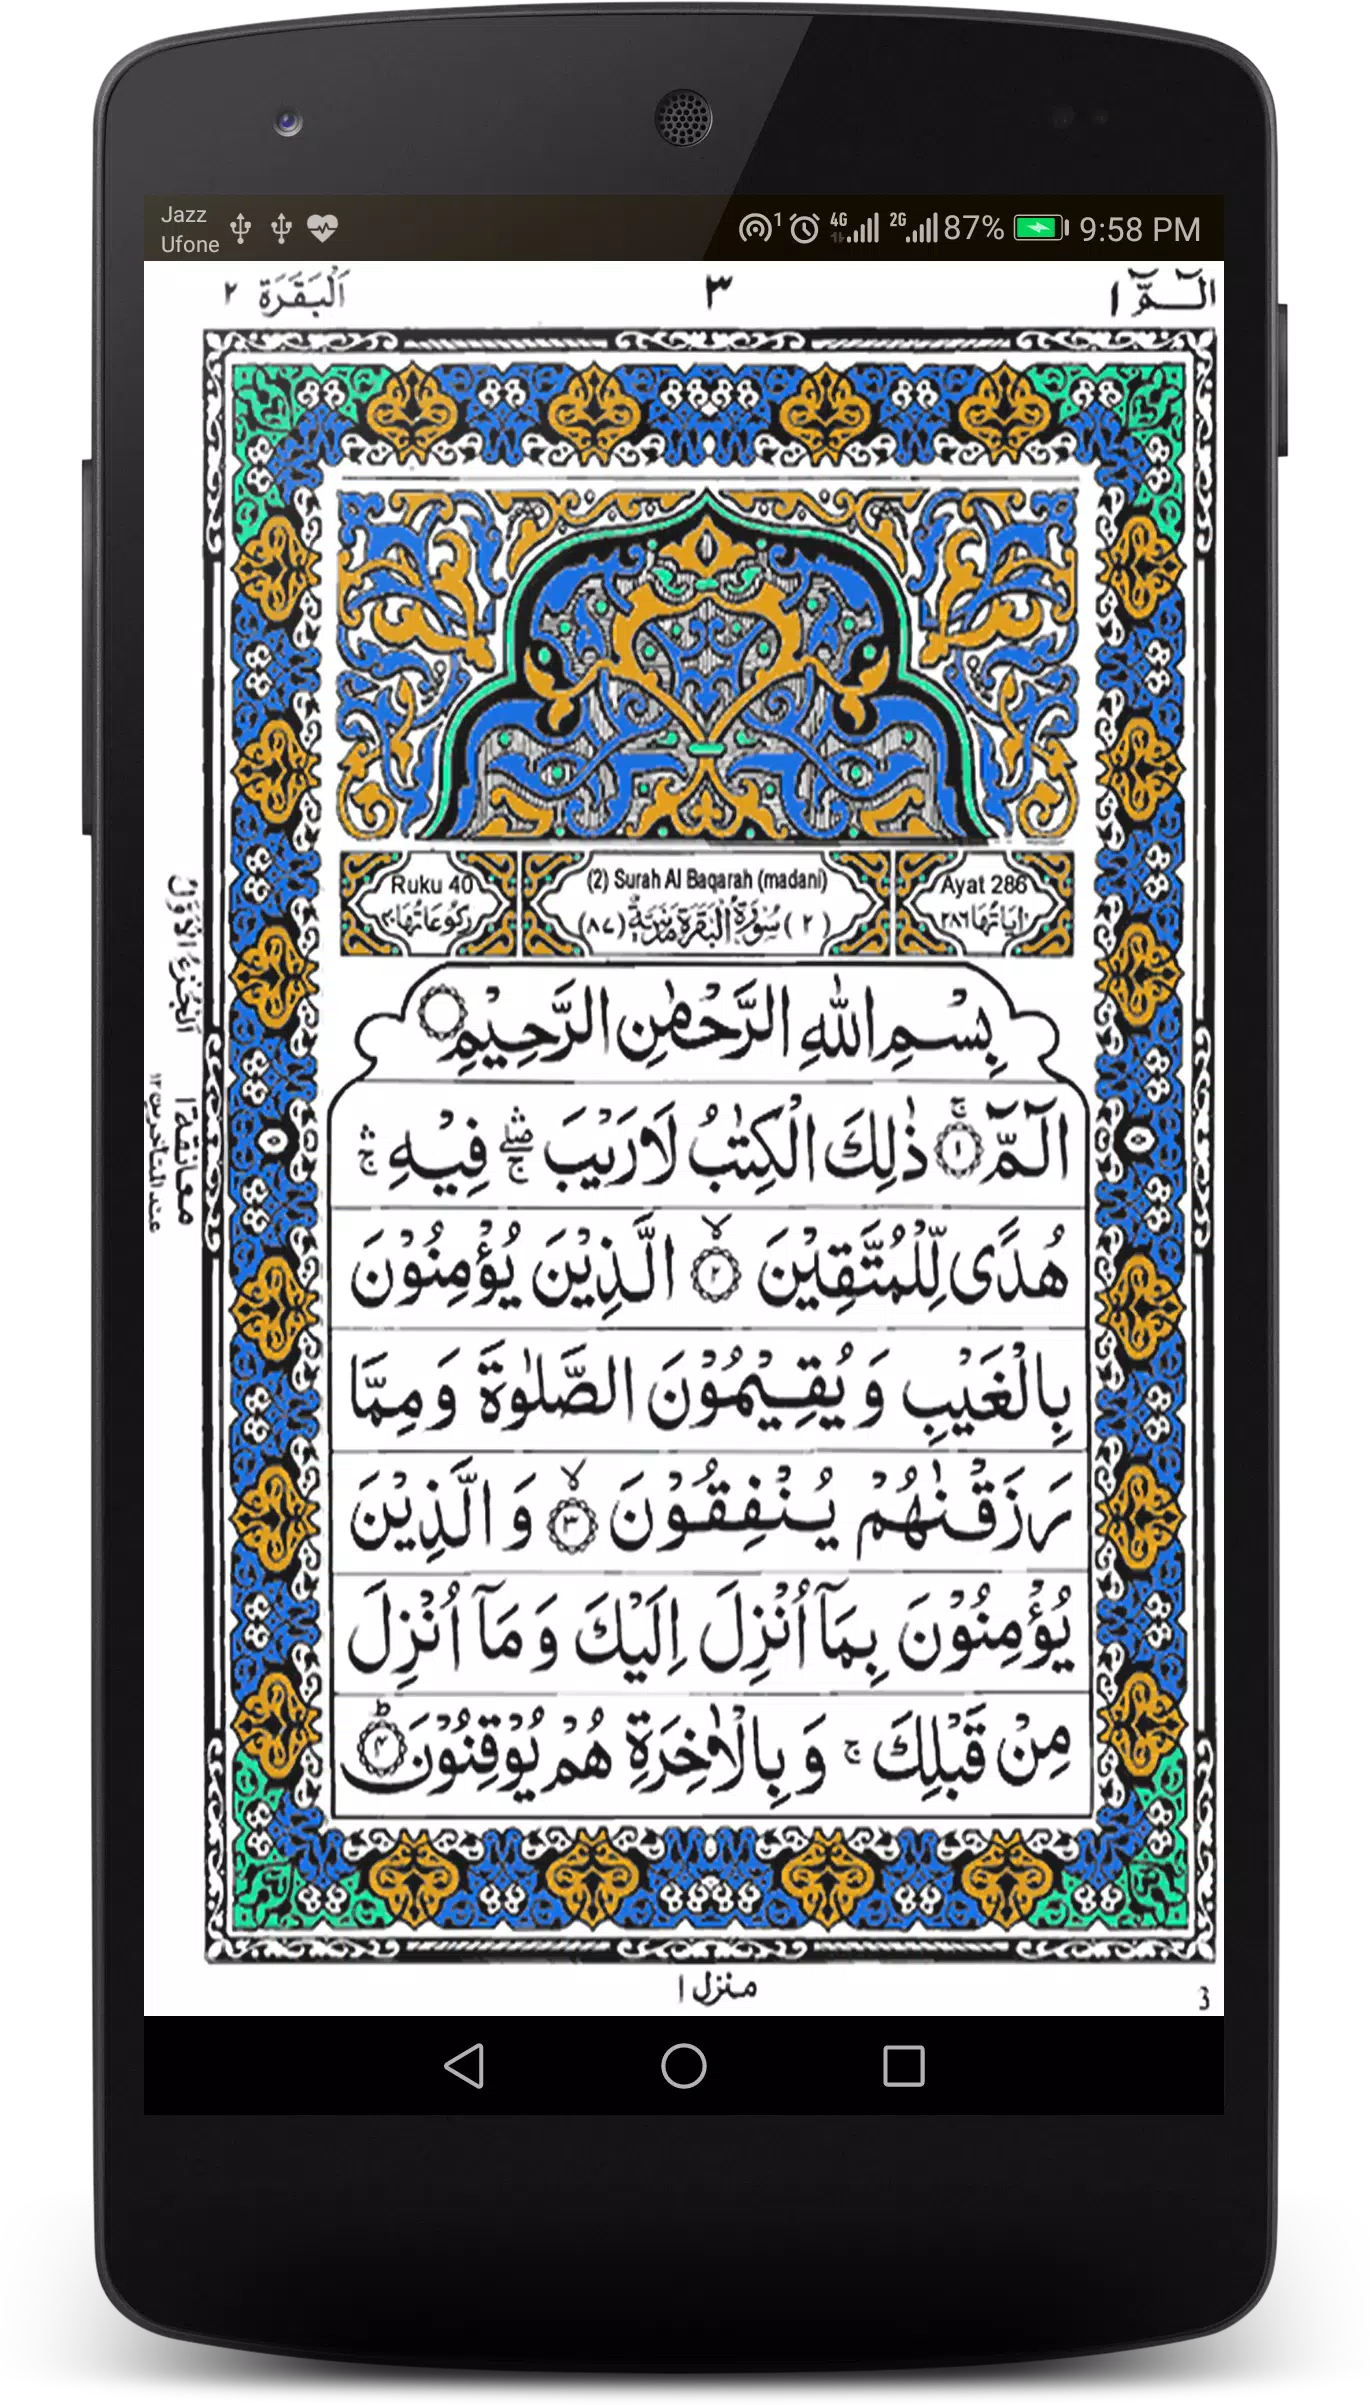 Jazz
Ufone
1 4G 2G 87% 9:58 PM
الٓـمّٓ ١ ٣ اَلْبَقَرَة ٢
Ayat 286 (2) Surah Al Baqarah (madani) Ruku 40
اٰيَاتُهَا ٢٨٦ (٢) سُوْرَةُ الْبَقَرَةِ مَدَنِيَّةٌ (٨٧) رُكُوْعَاتُهَا ٤٠
بِسْمِ اللّٰهِ الرَّحْمٰنِ الرَّحِيْمِ
الٓمّٓ ۚ ١ ذٰلِكَ الْكِتٰبُ لَا رَيْبَ ۛۖۚ فِيْهِ ۛۚ
هُدًى لِّلْمُتَّقِيْنَ ۙ ٢ الَّذِيْنَ يُؤْمِنُوْنَ
بِالْغَيْبِ وَيُقِيْمُوْنَ الصَّلٰوةَ وَمِمَّا
رَزَقْنٰهُمْ يُنْفِقُوْنَ ۙ ٣ وَالَّذِيْنَ
يُؤْمِنُوْنَ بِمَآ اُنْزِلَ اِلَيْكَ وَمَآ اُنْزِلَ
مِنْ قَبْلِكَ ۚ وَبِالْاٰخِرَةِ هُمْ يُوْقِنُوْنَ ؕ ٤
اَلْجُزْءُ الْاَوَّلُ
معانقة ١
عند المتاخرين ١٢
منزل ١
3